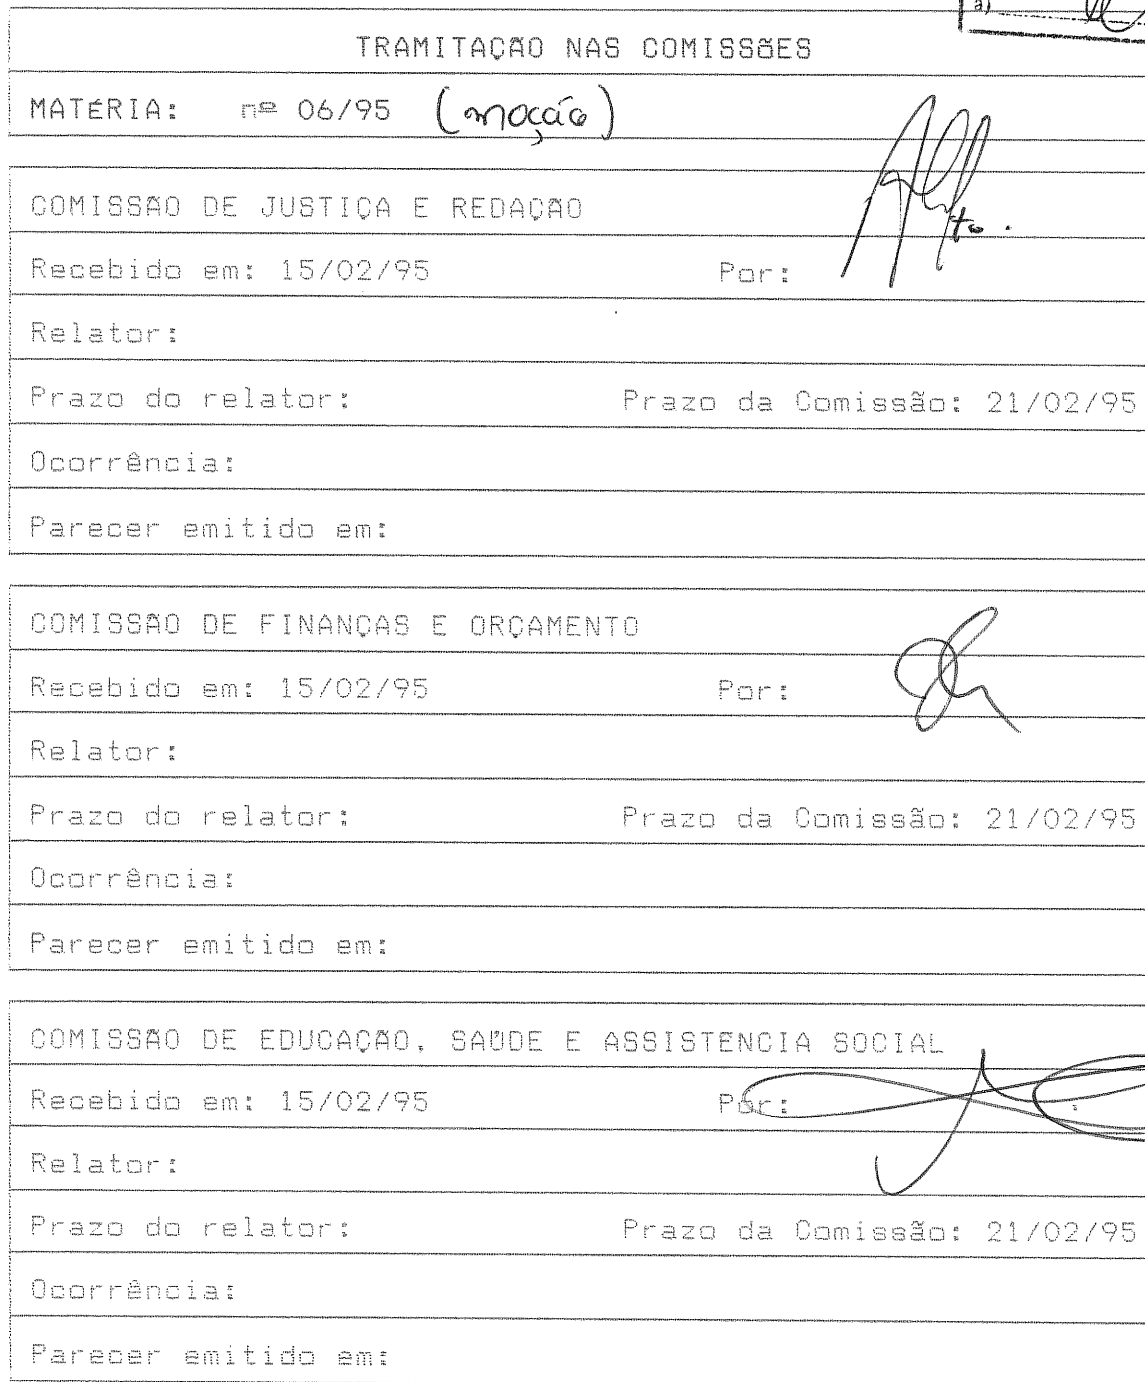 a)
TRAMITAÇÃO NAS COMISSÕES
MATÉRIA: nº 06/95 (moção)
COMISSÃO DE JUSTIÇA E REDAÇÃO
Recebido em: 15/02/95 Por:
Relator:
Prazo do relator: Prazo da Comissão: 21/02/95
Ocorrência:
Parecer emitido em:
COMISSÃO DE FINANÇAS E ORÇAMENTO
Recebido em: 15/02/95 Por:
Relator:
Prazo do relator: Prazo da Comissão: 21/02/95
Ocorrência:
Parecer emitido em:
COMISSÃO DE EDUCAÇÃO, SAÚDE E ASSISTENCIA SOCIAL
Recebido em: 15/02/95 Por:
Relator:
Prazo do relator: Prazo da Comissão: 21/02/95
Ocorrência:
Parecer emitido em: